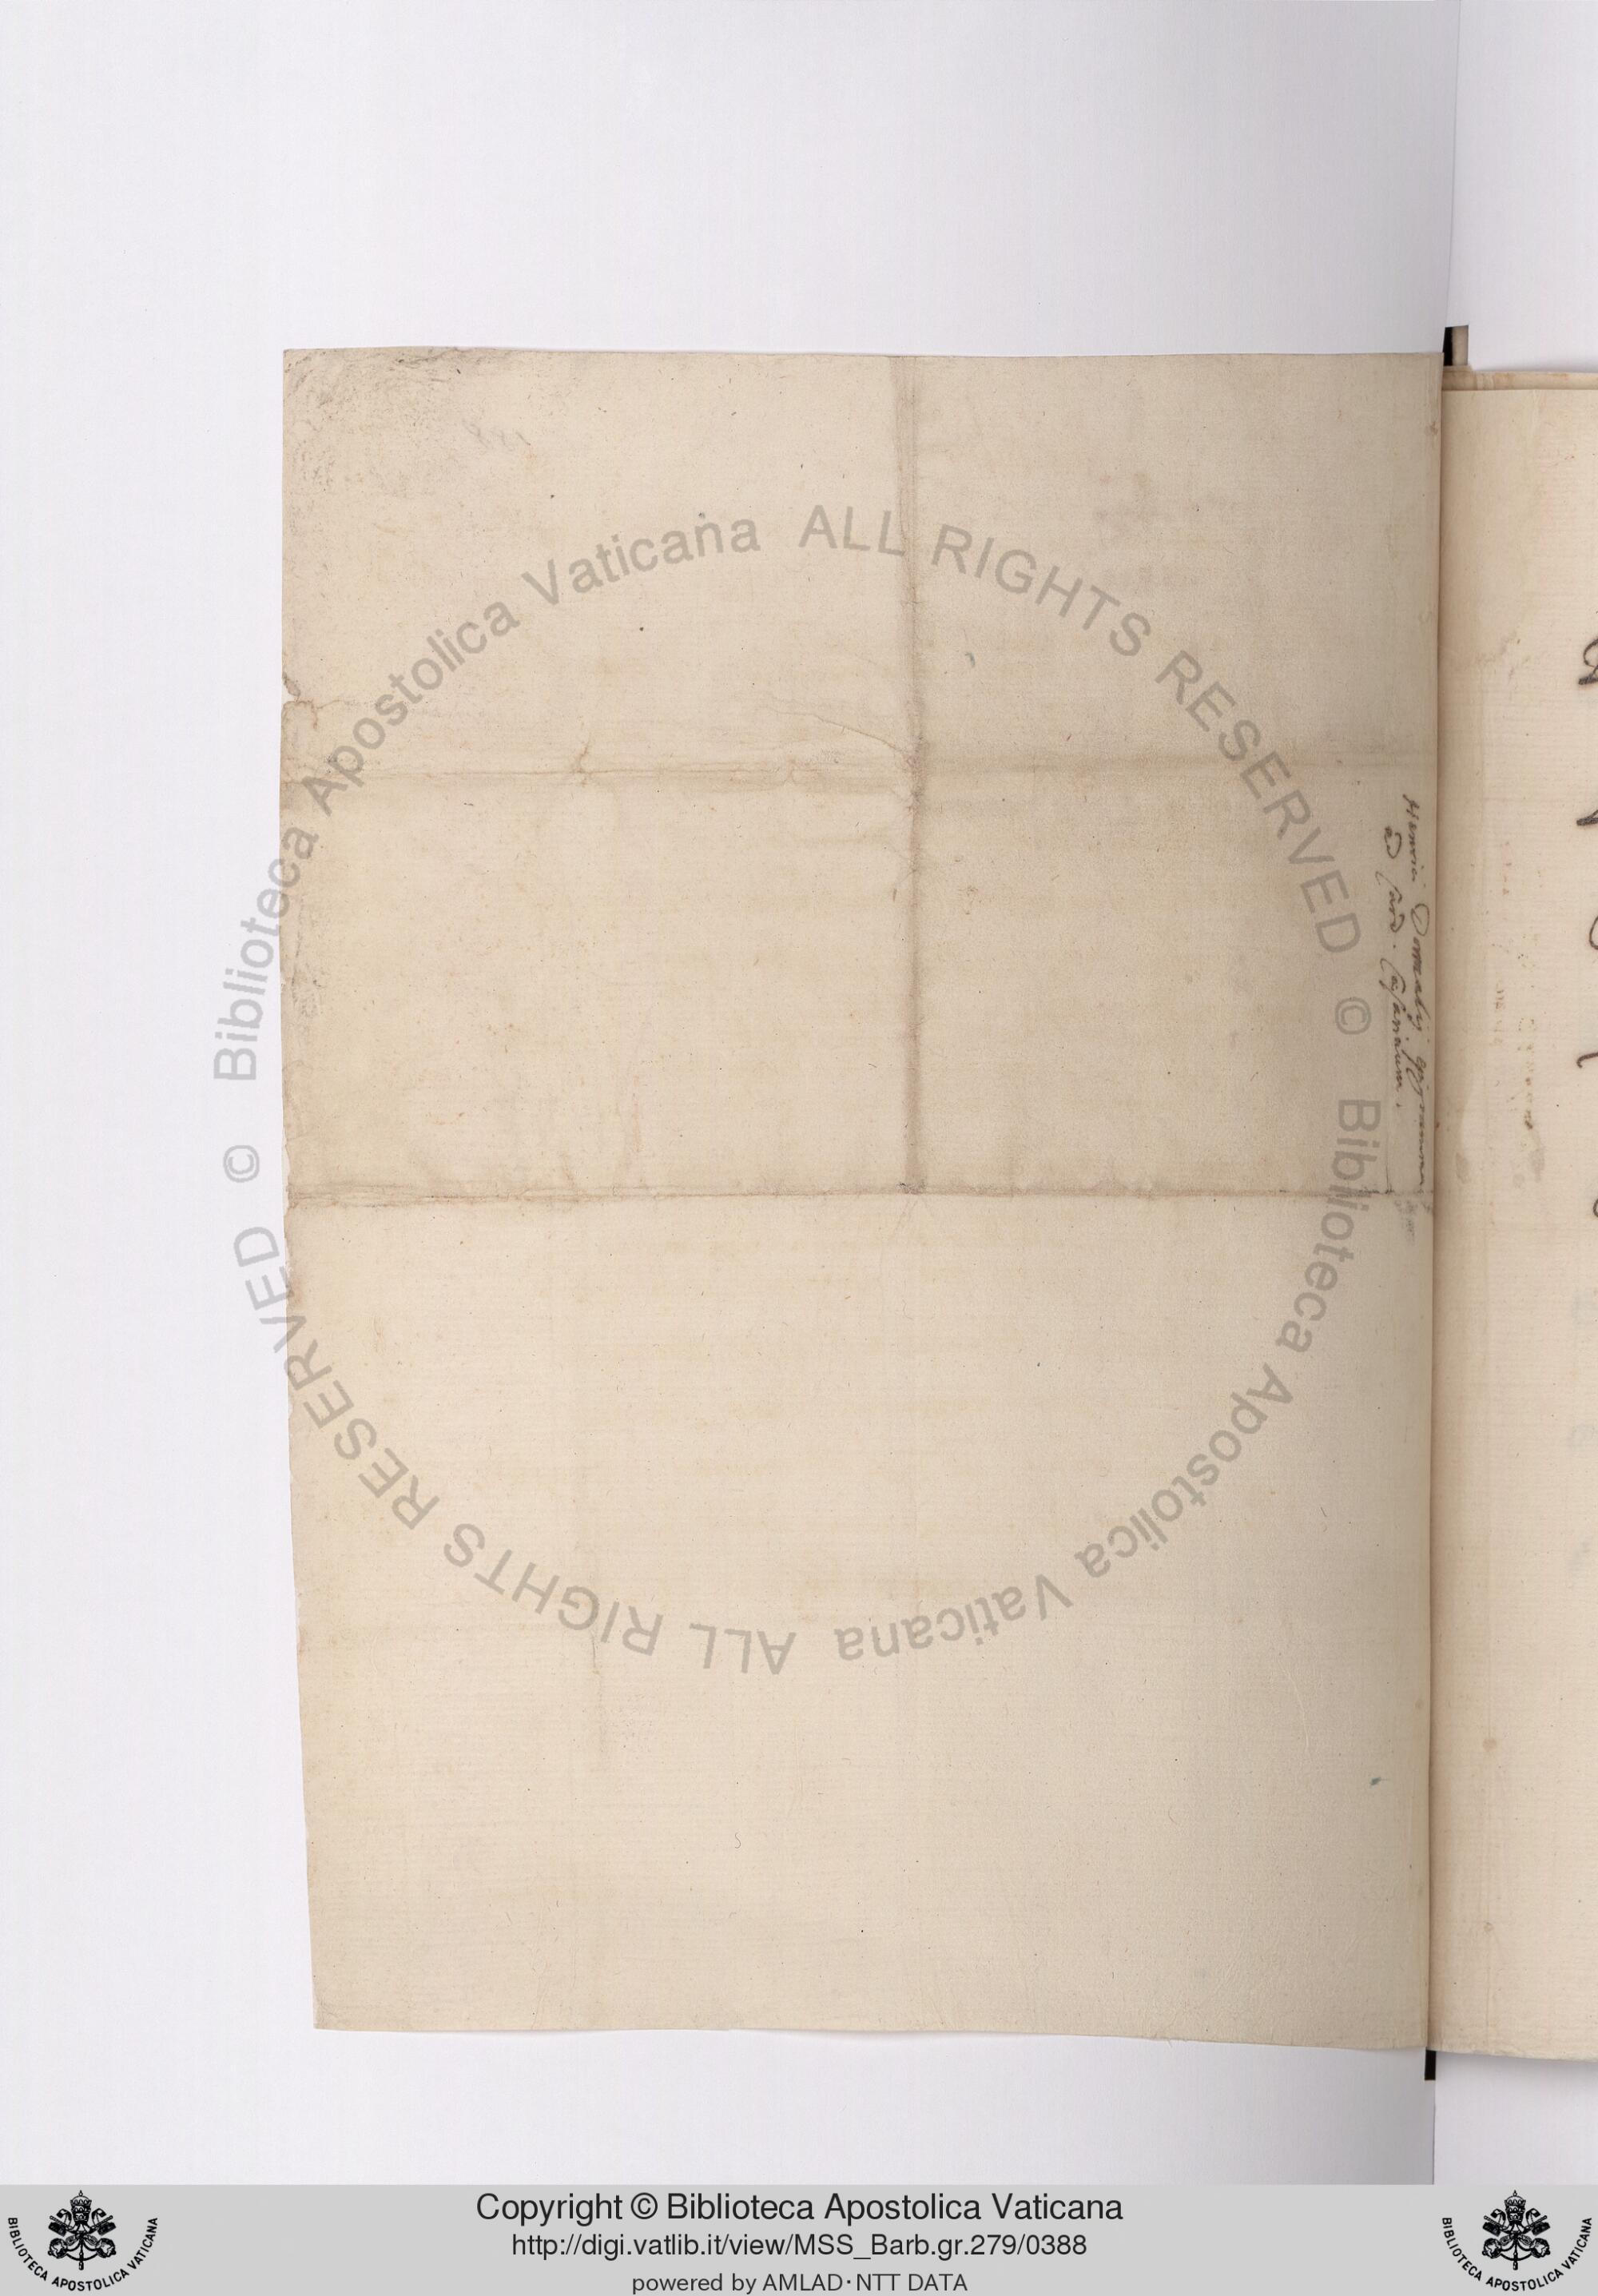 Henrici Dormalij epigramma
ad Card. Casanatum.
ALL RIGHTS RESERVED © Biblioteca Apostolica Vaticana
ALL RIGHTS RESERVED © Biblioteca Apostolica Vaticana
Copyright © Biblioteca Apostolica Vaticana
http://digi.vatlib.it/view/MSS_Barb.gr.279/0388
powered by AMLAD·NTT DATA
BIBLIOTECA APOSTOLICA VATICANA
BIBLIOTECA APOSTOLICA VATICANA